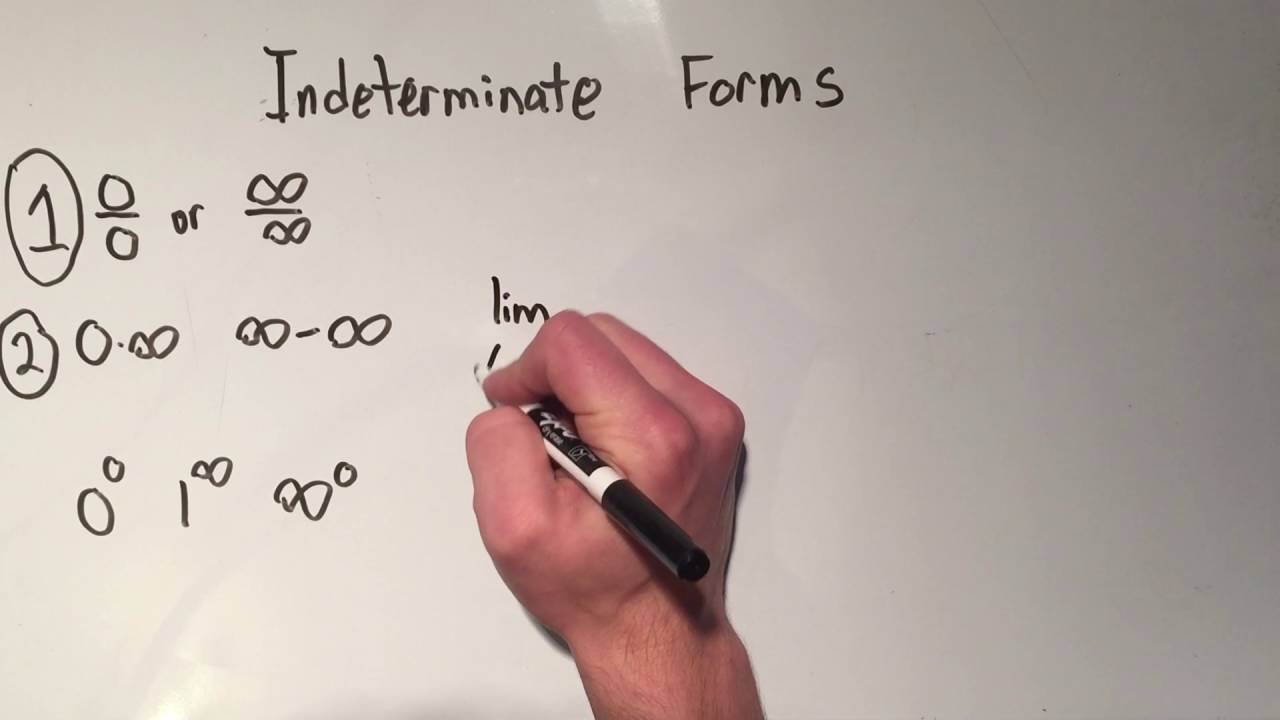 Indeterminate Forms
1 0/0 or ∞/∞
2 0·∞ ∞-∞
lim
0^0 1^∞ ∞^0
EXPO